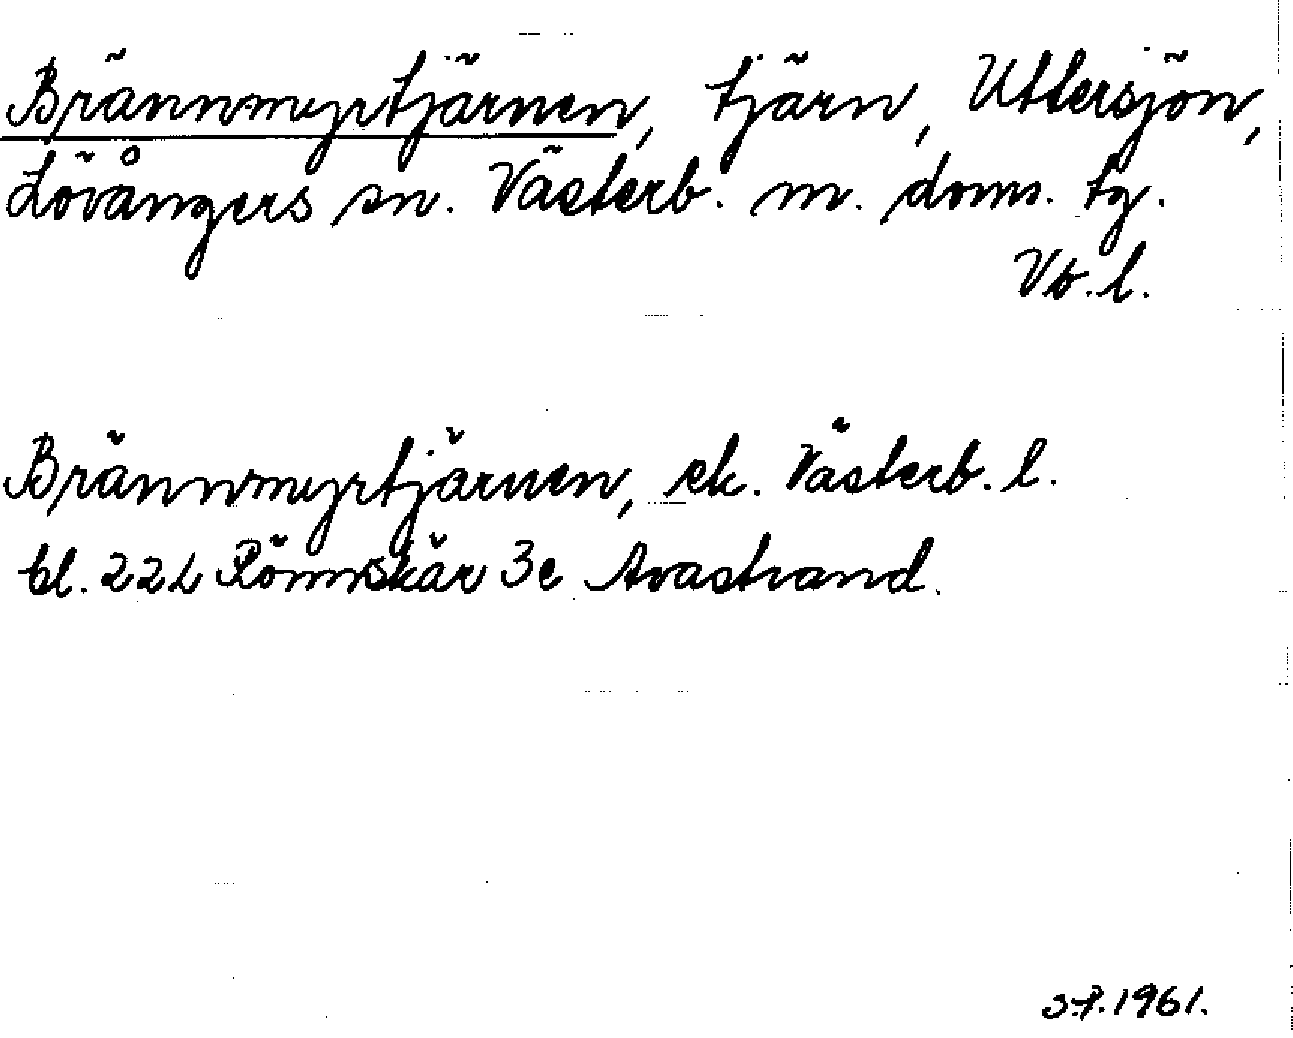 Brännmyrtjärnen, tjärn, Uttersjön,
Lövångers sn. Västerb. m. doms. tg.
Vb. l.
Brännmyrtjärnen, ek. Västerb. l.
bl. 22L Rönnskär 3e Avastrand.
S.P. 1961.